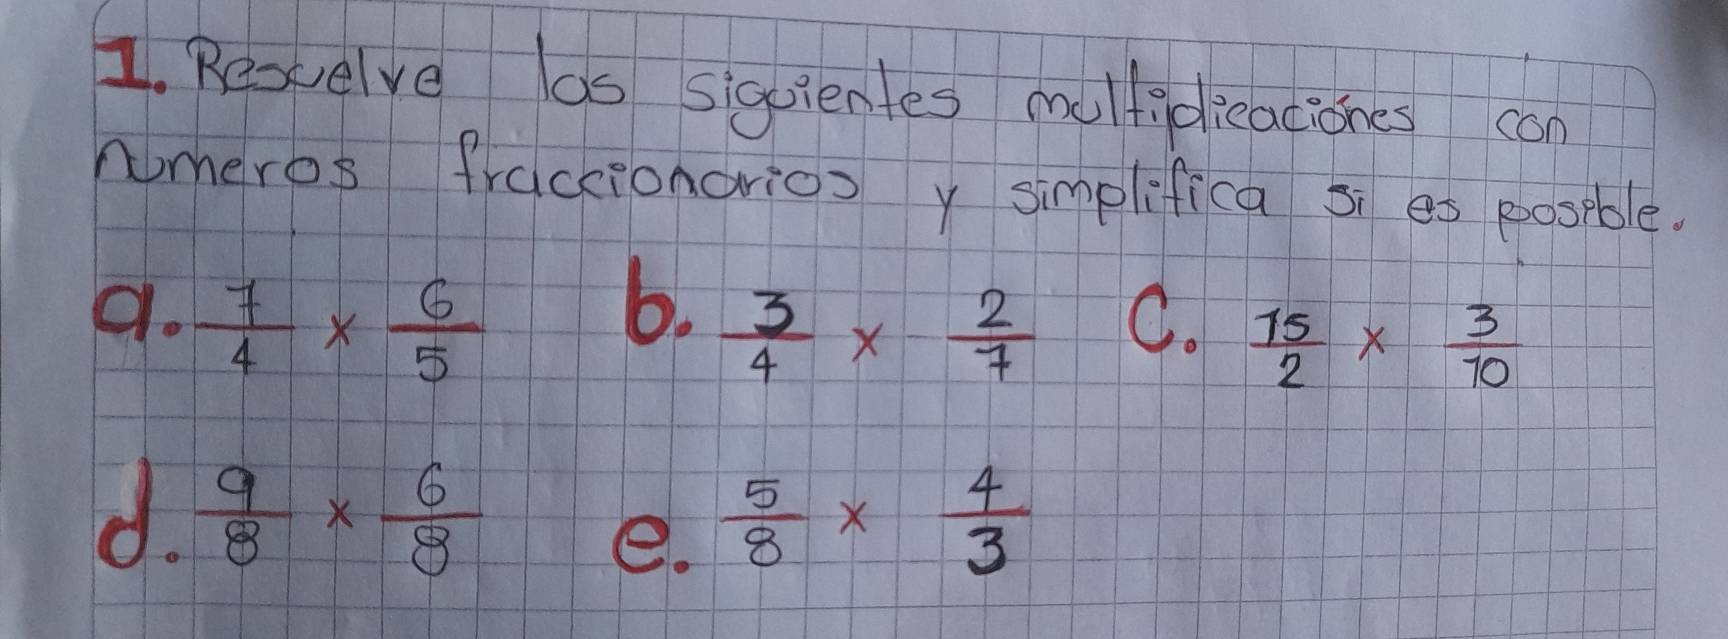 1. Resuelve las siguientes multiplicaciones con
numeros fraccionarios y simplifica si es posible.
a. 7/4 x 6/5 b. 3/4 x 2/7 c. 15/2 x 3/10
d. 9/8 x 6/8 e. 5/8 x 4/3